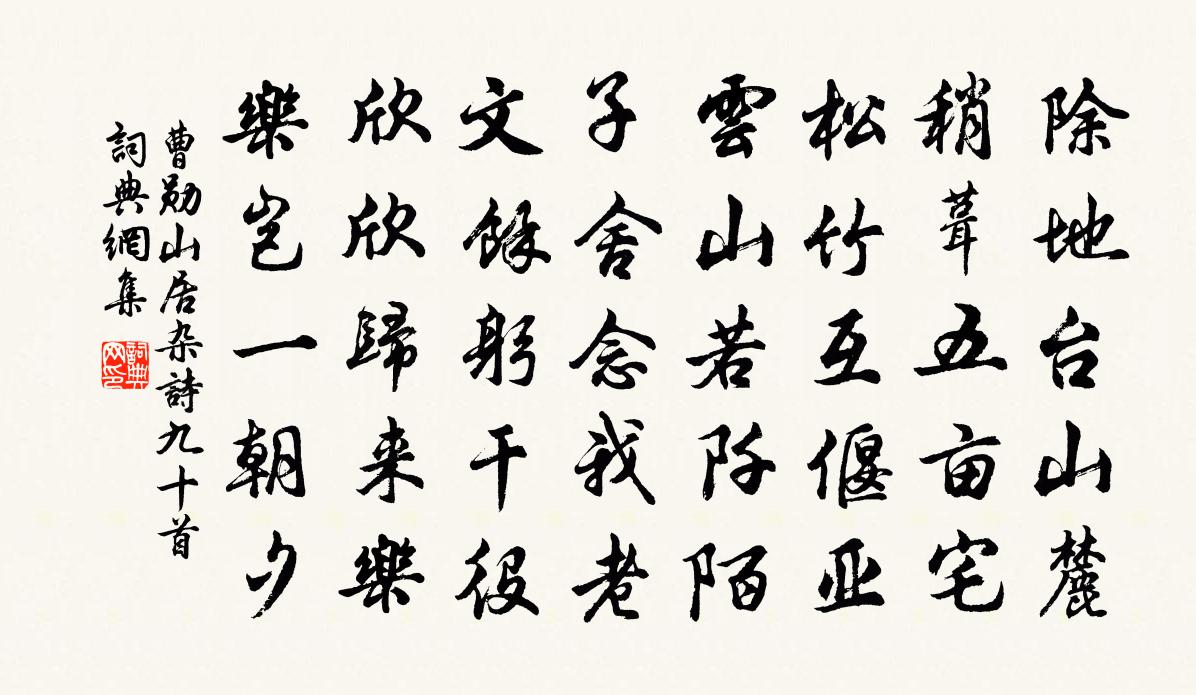 除地台山麓
稍葺五亩宅
松竹互偃亚
雲山若阡陌
子舍念我老
文餘躬干役
欣欣歸来樂
樂岂一朝夕
曹勋山居杂詩九十首
詞典網集
詞典网印